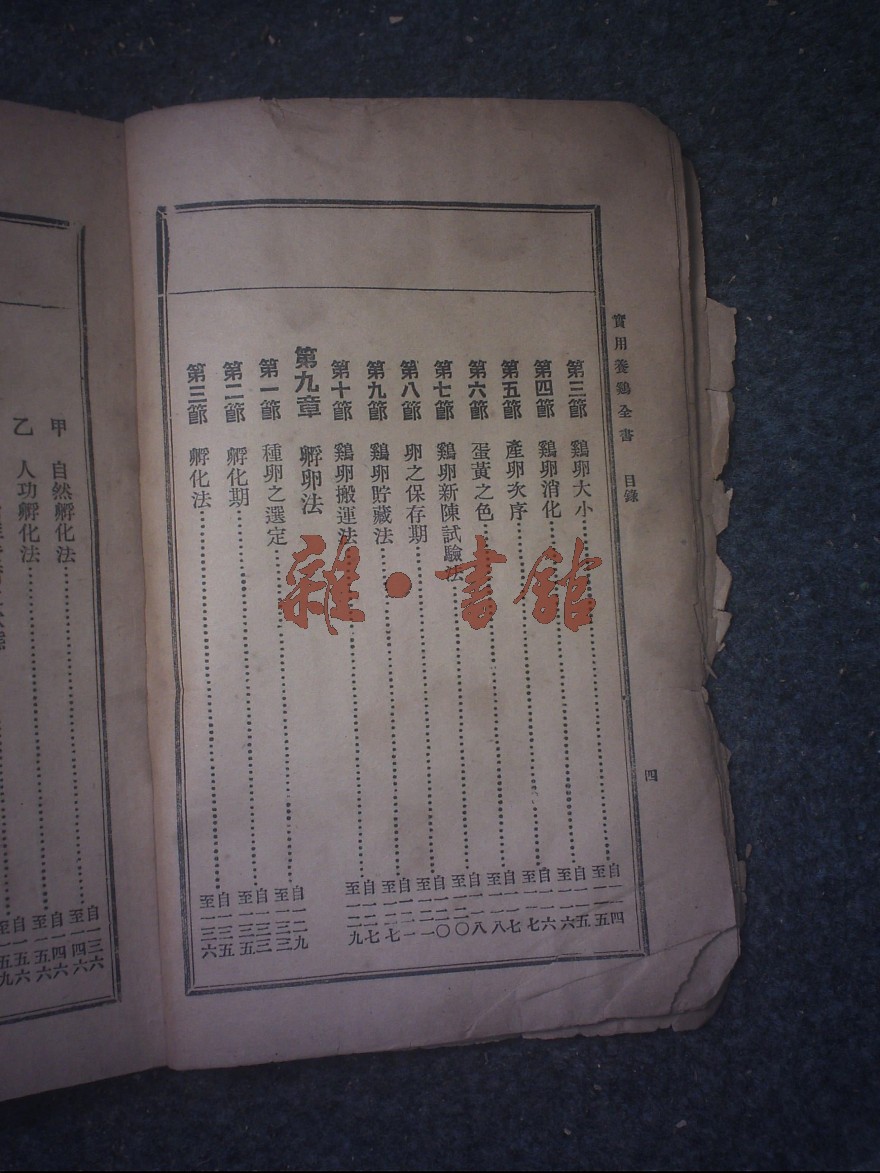 實用養鷄全書 目錄
四
第三節 鷄卵大小……自一一四至一一五
第四節 鷄卵消化……自一一五至一一六
第五節 產卵次序……自一一六至一一七
第六節 蛋黃之色……自一一七至一一八
第七節 鷄卵新陳試驗法……自一一八至一二〇
第八節 卵之保存期……自一二〇至一二一
第九節 鷄卵貯藏法……自一二一至一二七
第十節 鷄卵搬運法……自一二七至一二九
第九章 孵卵法
第一節 種卵之選定……自一二九至一三三
第二節 孵化期……自一三三至一三五
第三節 孵化法……自一三五至一三六
甲 自然孵化法……自一三六至一四六
乙 人功孵化法……自一四六至一五六
自一五六至一五九
雜·書館